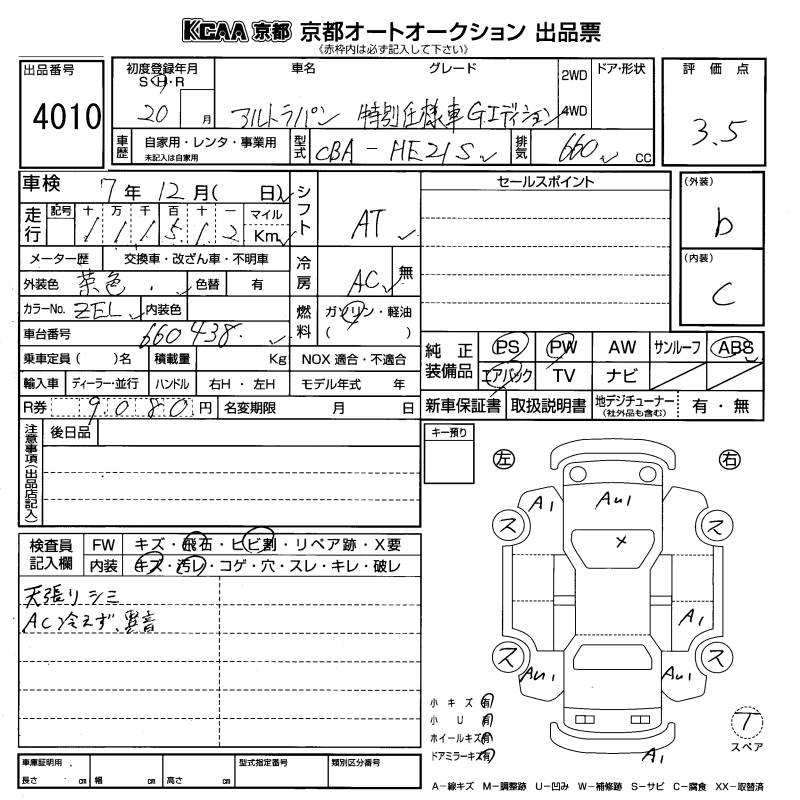 KCAA 京都 京都オートオークション 出品票
《赤枠内は必ず記入して下さい》
出品番号
4010
初度登録年月
S・H・R
20 月
車名 グレード
アルトラパン 特別仕様車Gエディション
2WD
4WD
ドア・形状
評価点
3.5
車歴
自家用・レンタ・事業用
未記入は自家用
型式
CBA-HE21S
排気
660 cc
車検
7年12月( 日)
走行
記号 十 万 千 百 十 一 マイル
1 1 1 5 1 2 Km
シフト
AT
メーター歴 交換車・改ざん車・不明車
外装色 茶色 色替 有
冷房
AC 無
カラーNo. ZEL 内装色
燃料
ガソリン・軽油
( )
車台番号 660438
乗車定員( )名 積載量 Kg NOX適合・不適合
輸入車 ディーラー・並行 ハンドル 右H・左H モデル年式 年
R券 9080円 名変期限 月 日
セールスポイント
(外装)
b
(内装)
C
純正装備品
PS PW AW サンルーフ ABS
エアバック TV ナビ
新車保証書 取扱説明書 地デジチューナー
(社外品も含む)
有・無
注意事項(出品店記入)
後日品
キー預り
左 右
検査員記入欄
FW キズ・飛石・ヒビ割・リペア跡・X要
内装 キズ・汚レ・コゲ・穴・スレ・キレ・破レ
天張りシミ
AC冷えず、異音
A1 AU1
ス ス
×
A1
ス ス
AU1 AU1
A1
小キズ 有
小U 有
ホイールキズ 有
ドアミラーキズ 有
T
スペア
車庫証明用
長さ cm 幅 cm 高さ cm
型式指定番号 類別区分番号
A-線キズ M-調整跡 U-凹み W-補修跡 S-サビ C-腐食 XX-取替済